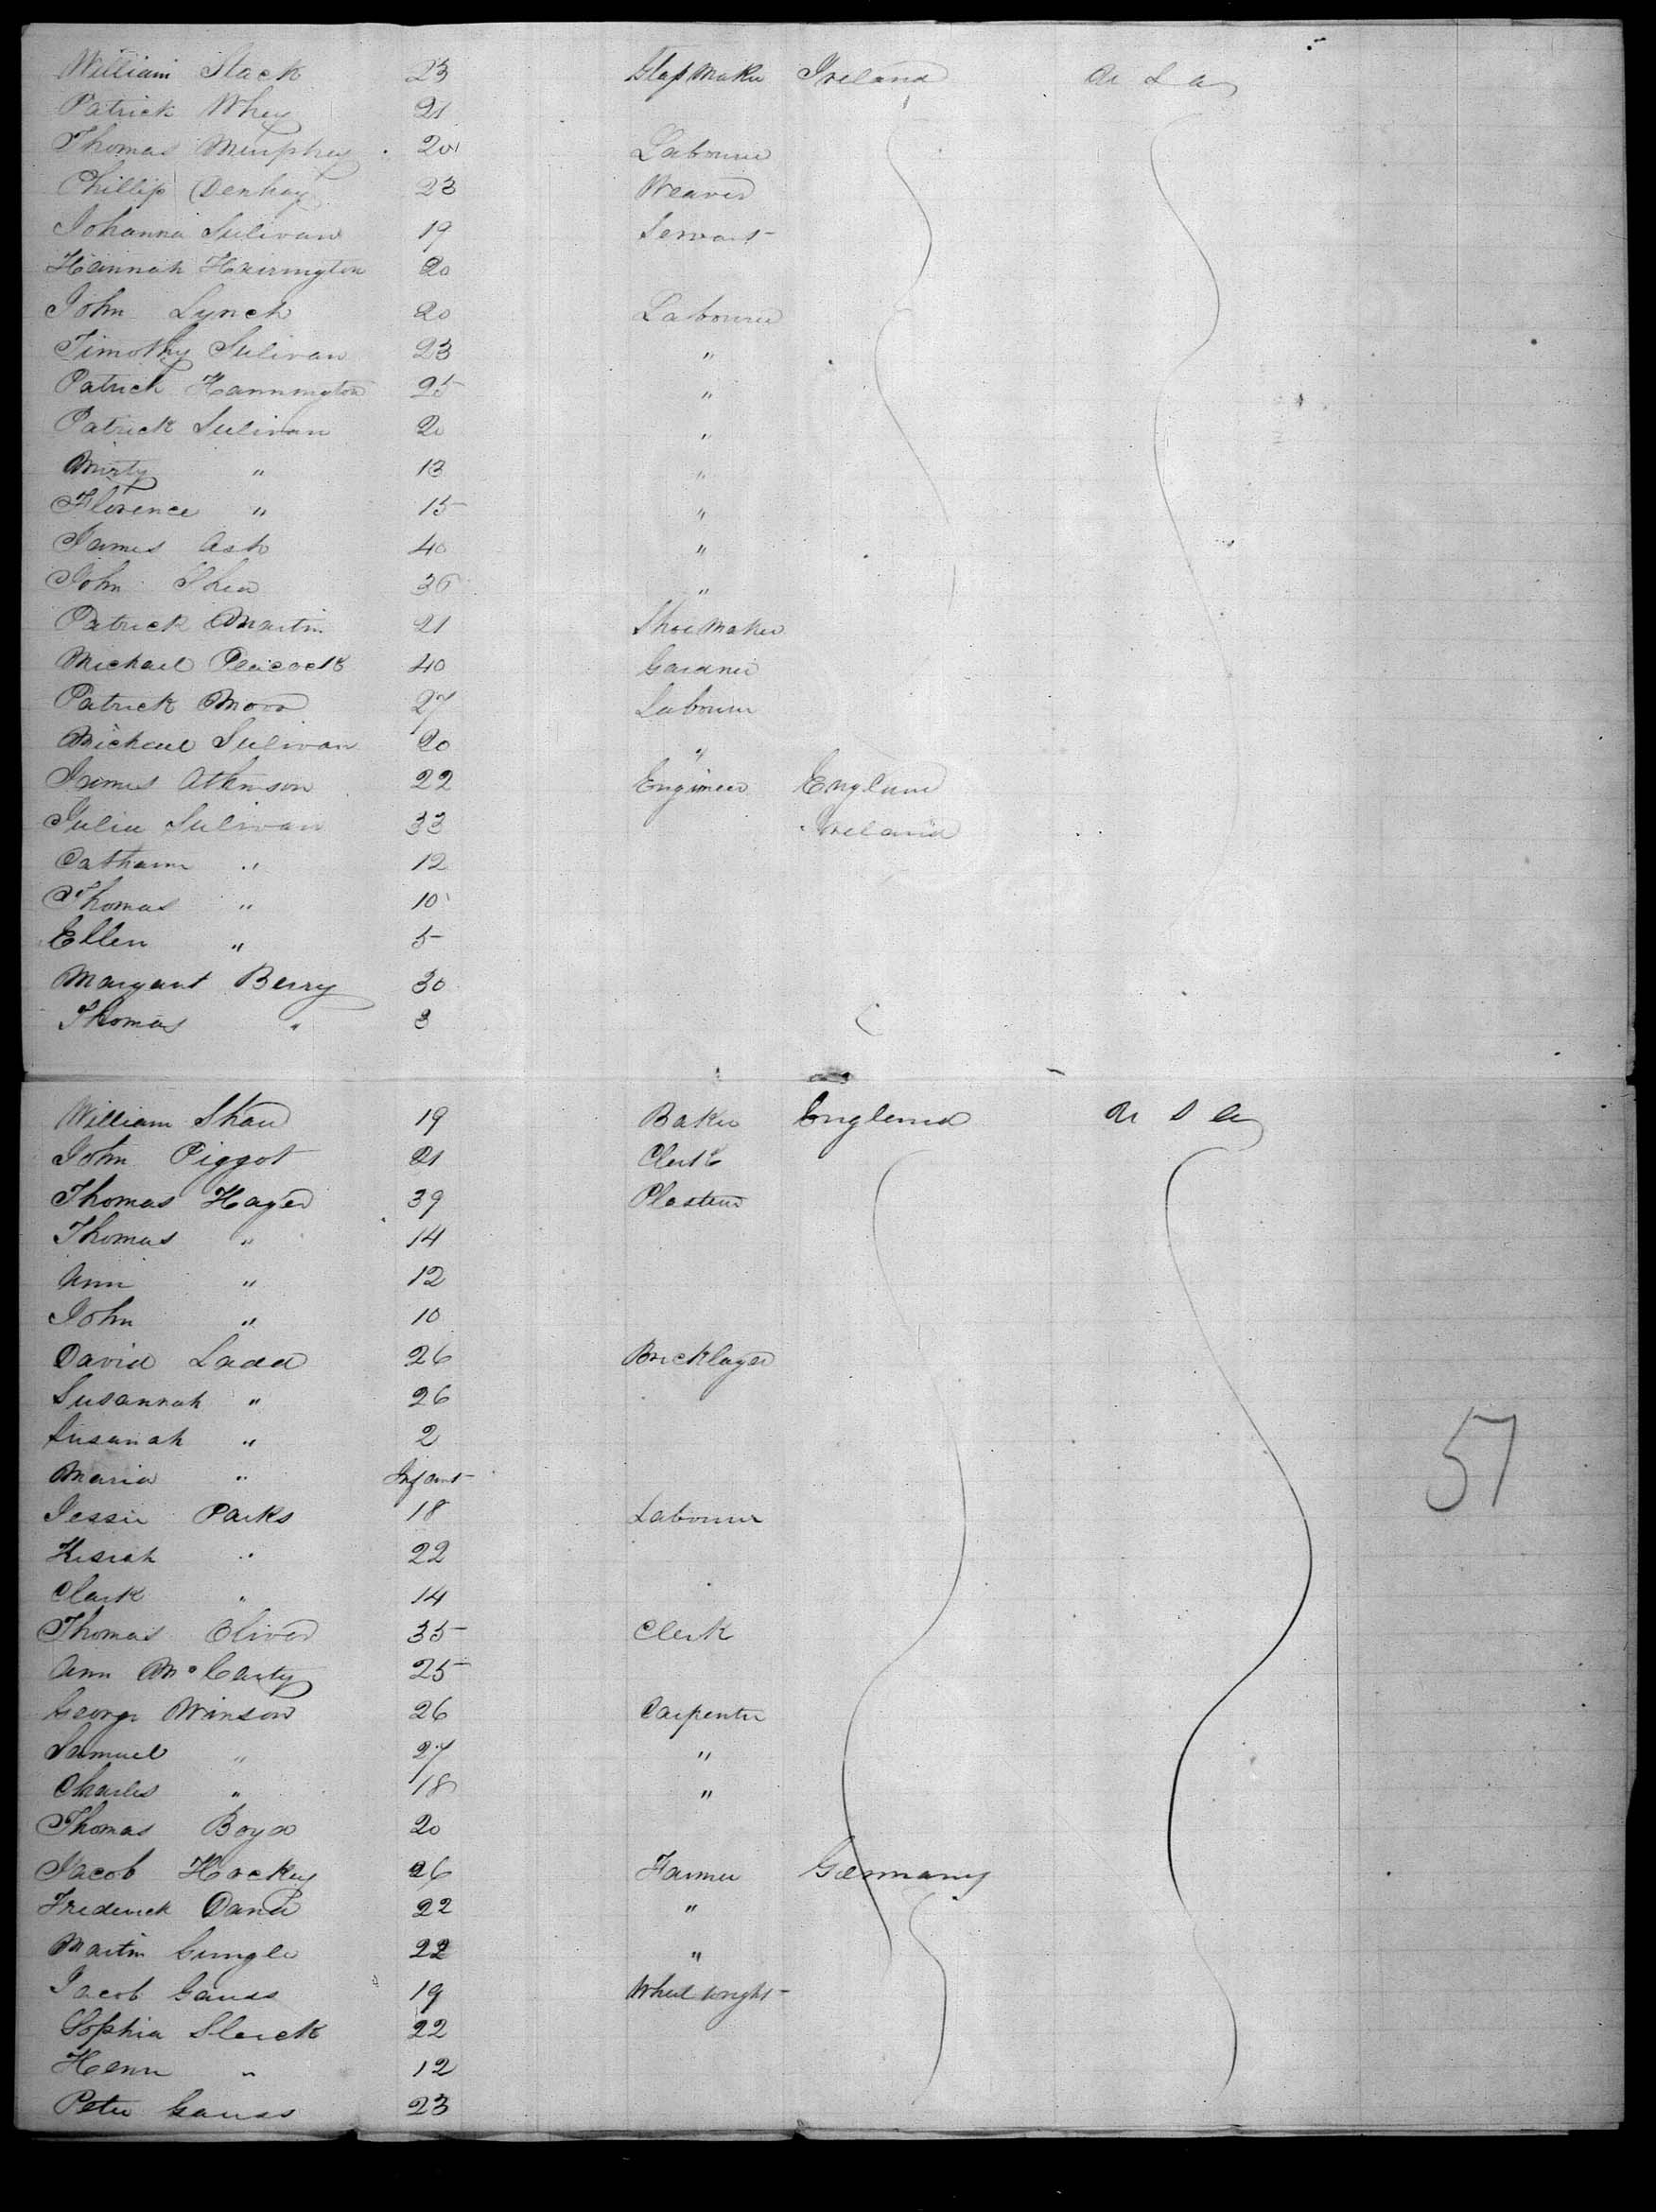 William Slack 23 Glass Maker Ireland U S A
Patrick Whey 21
Thomas Murphey 20 Labourer
Phillip Denhay 23 Weaver
Johanna Sulivan 19 Servant
Hannah Harrington 20
John Lynch 20 Labourer
Timothy Sulivan 23 "
Patrick Hannington 25 "
Patrick Sulivan 20 "
Murty " 13 "
Florence " 15 "
James Ash 40 "
John Shea 36 "
Patrick Martin 21 Shoe Maker
Michael Peacock 40 Gardner
Patrick Moor 27 Labourer
Michael Sulivan 20 "
James Atkinson 22 Engineer England
Julia Sulivan 33 Ireland
Catharin " 12
Thomas " 10
Ellen " 5
Margaret Berry 30
Thomas " 3
William Shaw 19 Baker England U S A
John Piggot 21 Clerk
Thomas Hayes 39 Plasterer
Thomas " 14
Ann " 12
John " 10
David Ladd 26 Bricklayer
Susannah " 26
Susanah " 2
Maria " Infant
Jessie Parks 18 Labourer
Kesiah " 22
Clark " 14
Thomas Oliver 35 Clerk
Ann McCarty 25
George Winson 26 Carpenter
Samuel " 27 "
Charles " 18 "
Thomas Boyd 20
Jacob Hockey 26 Farmer Germany
Frederick Dana 22 "
Martin 22 "
Jacob Gauss 19 Wheel wright
Sophia Sleick 22
Henri " 12
Peter Gauss 23
57